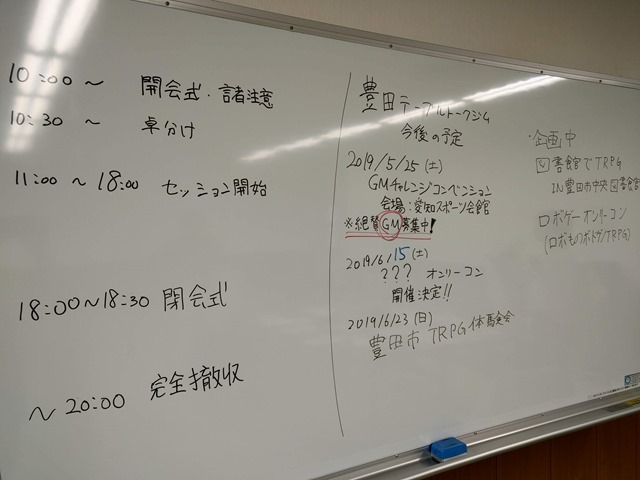 10:00～ 開会式・諸注意
10:30 ～ 卓分け
11:00 ～ 18:00 セッション開始
18:00～18:30 閉会式
～20:00 完全撤収
豊田テーブルトークジム
今後の予定
2019/5/25(土)
GMチャレンジコンベンション
会場:愛知スポーツ会館
※絶賛GM募集中!
2019/6/15(土)
??? オンリーコン
開催決定!!
2019/6/23(日)
豊田市 TRPG体験会
・企画中
図書館でTRPG
IN豊田市中央図書館
ロボゲーオンリーコン
(ロボものボドゲ/TRPG)